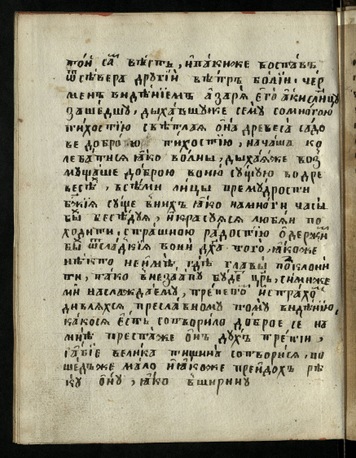 той са́ вѣсть, и҆пакиже воставъ
ѿ сѣвера другїй вѣтръ болїи, чер
менъ видѣнїемъ а҆ заря̀, его̀ же
зашедшу, дыхавшуже сему сомногою
тихостїю свѣтлая ѻ҆на̀ древеса садо
ве доброю тихостїю, начаша ко
лебатися ꙗ҆ко волны, дыхаяже воз
мущаше доброю воню сущую водре
весѣ, всѣми лицы премудрости
бж҃їя суще внихъ ꙗ҆ко намноги часы
бы́ бесѣдуя, и҆красуяся любѧи по
ходити, страшною радостїю ѡ҆держи́
бы́ ѿ сладкїя вони дх҃а того, ꙗ҆коже
нѣкто неимѣ гдѣ главы поклони
ти, тако внезаапу буде цр҃ь, симиже
ми наслаждаему, трепето́ и҆страхо́
дивляхся преславному тому видѣнїю,
какося есть сотворило доброе се на
мнѣ престаже ѻ҆нъ духъ третїи,
ꙗ҆бїе велика тишина сотворися, по
шедъже мало и҆ꙗ҆коже преидохъ рѣ
ку ѻ҆ну, ꙗ҆ко вширину